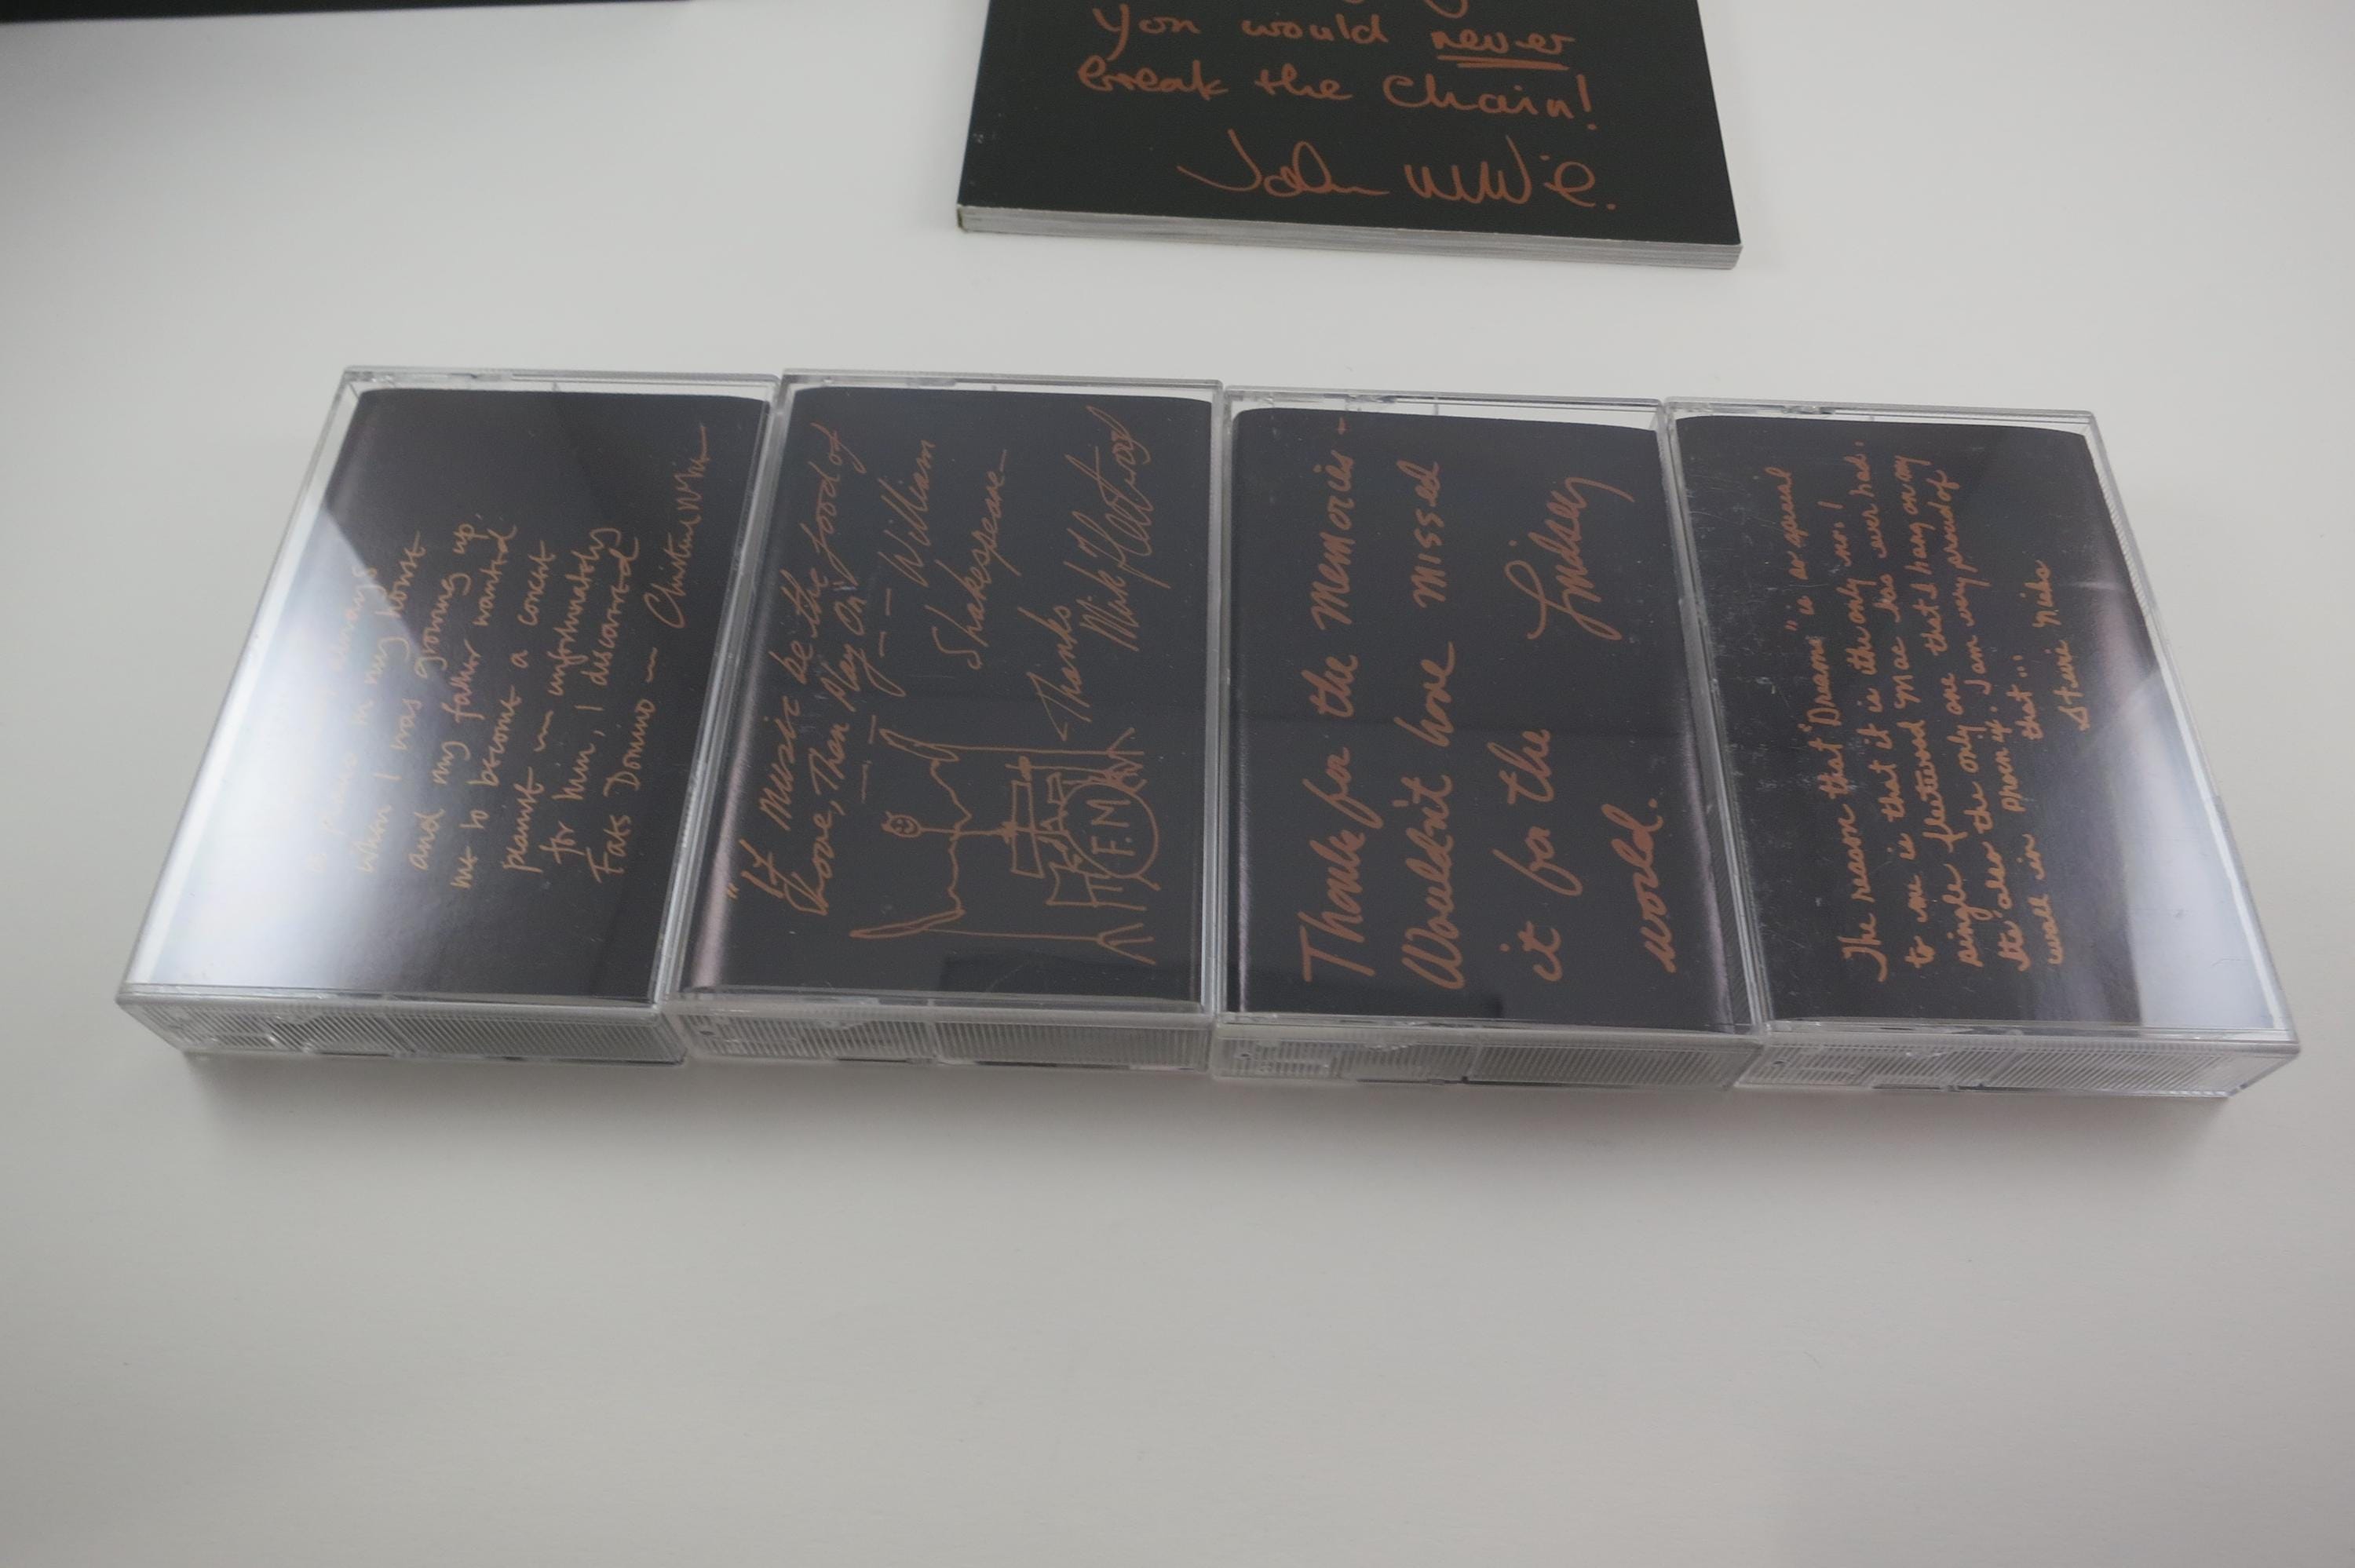 you would never
break the Chain!
John McVie.
piano in my house
when I was growing up,
and my father wanted
me to become a concert
pianist — unfortunately
for him, I discovered
Fats Domino —
Christine McVie
"If Music be the food of
Love, Then Play On"
William
Shakespeare
Thanks
Mick Fleetwood
F.M
Thanks for the memories -
Wouldn't have missed
it for the
world.
Lindsey
The reason that "Dreams" is so special
to me is that it is the only no. 1
single Fleetwood Mac has ever had.
It's also the only one that I hang on my
wall in Phoenix. I am very proud of
that..
Stevie Nicks